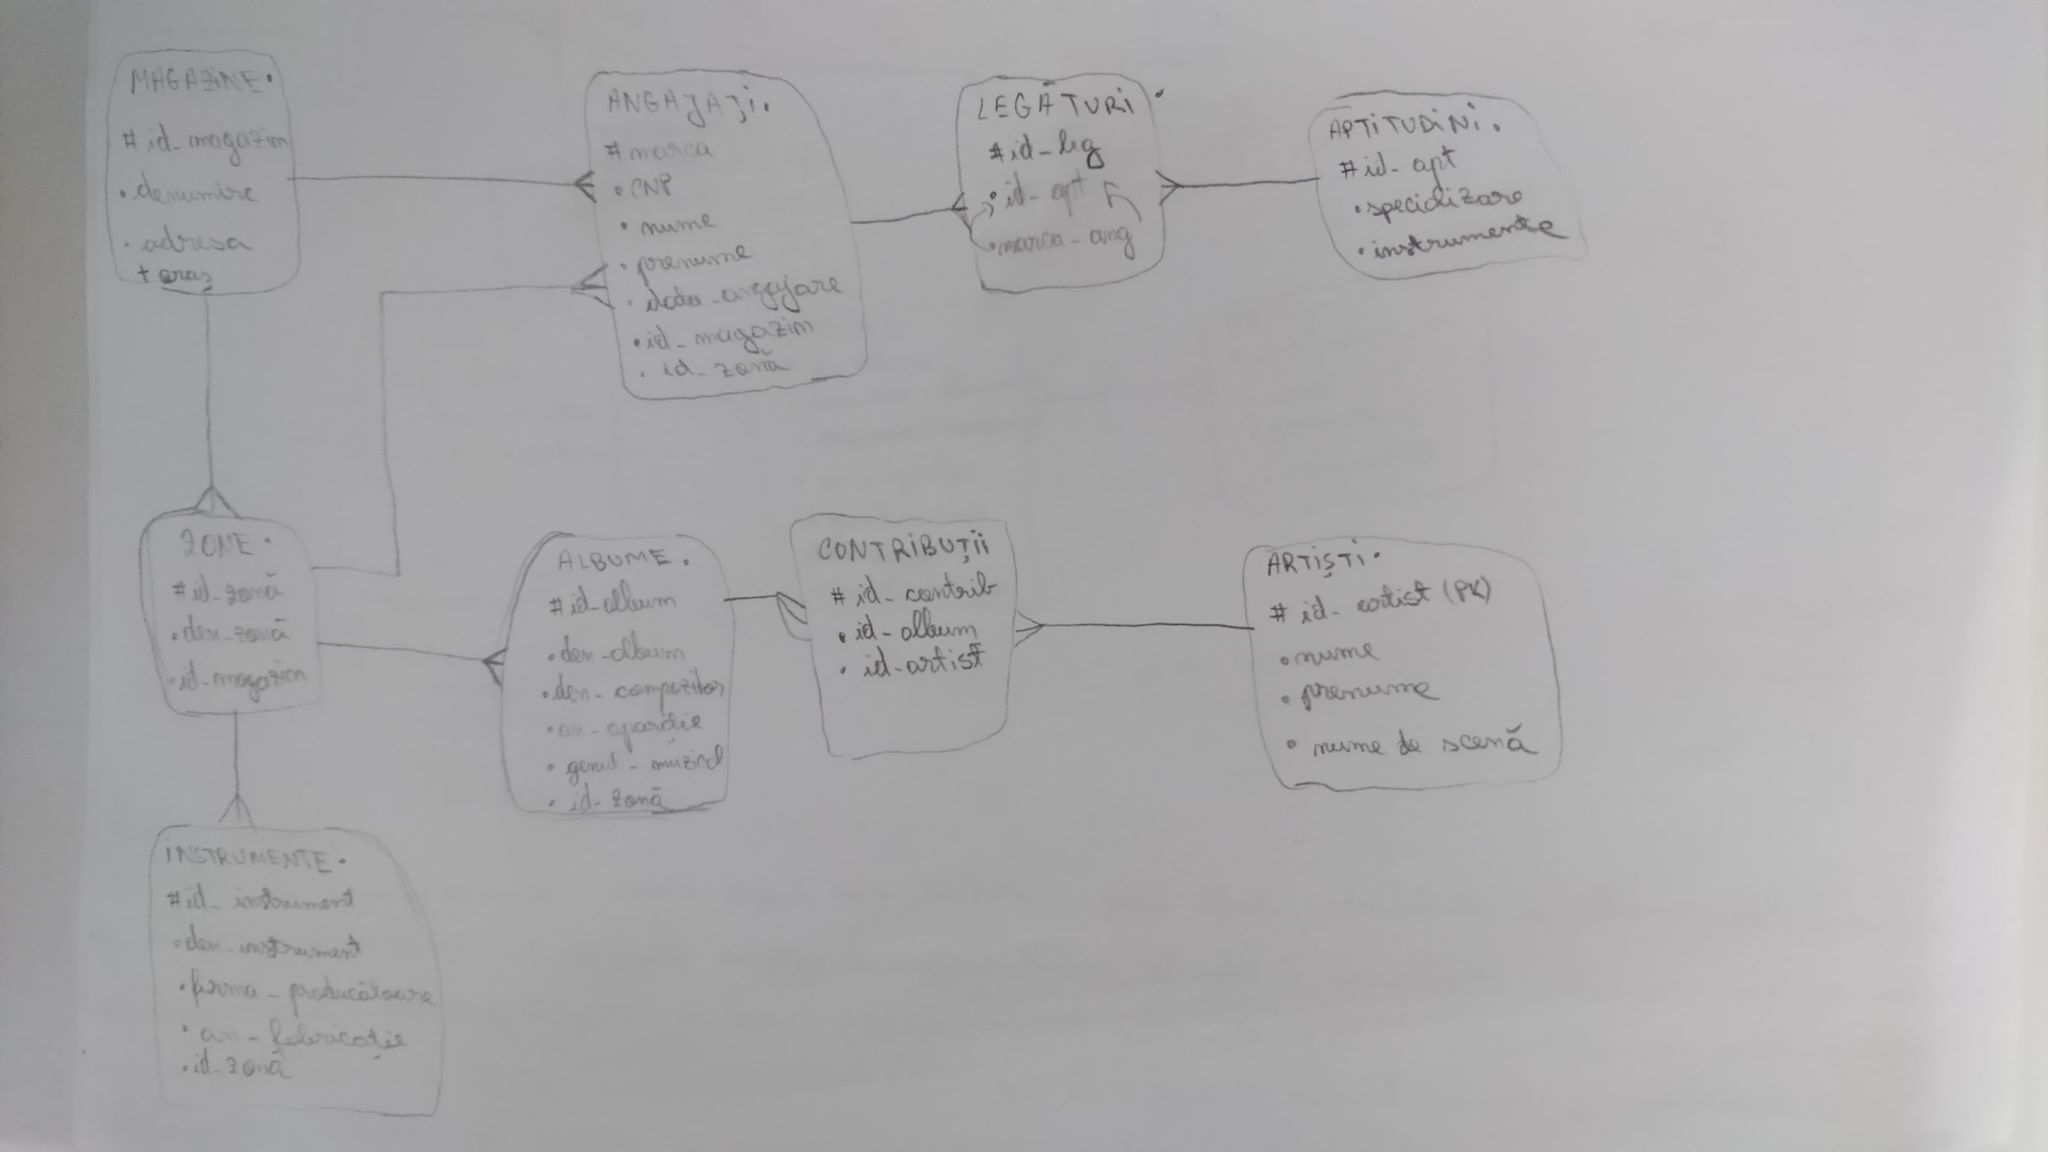 MAGAZINE.
# id_magazin
• denumire
• adresa
+ oraș
ANGAJAȚI.
# marca
• CNP
• nume
• prenume
• data_angajare
• id_magazin
• id_zonă
LEGĂTURI
# id_leg
• id_apt
• marca_ang
APTITUDINI.
# id_apt
• specializare
• instrumente
ZONE.
# id_zonă
• den_zonă
• id_magazin
ALBUME.
# id_album
• den_album
• den_compozitor
• an_apariție
• genul_muzical
• id_zonă
CONTRIBUȚII
# id_contrib
• id_album
• id_artist
ARTIȘTI.
# id_artist (PK)
• nume
• prenume
• nume de scenă
INSTRUMENTE.
# id_instrument
• den_instrument
• firma_producătoare
• an_fabricație
• id_zonă